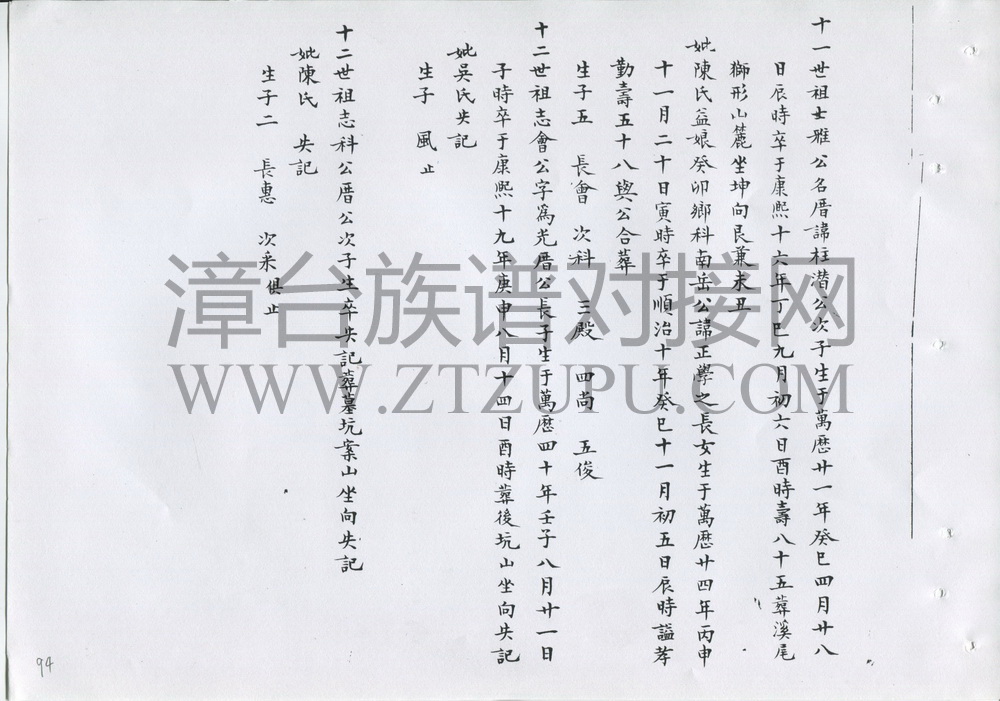 十一世祖士雅公名厝諱柱潛公次子生于萬曆廿一年癸巳四月廿八
日辰時卒于康熙十六年丁巳九月初六日酉時壽八十五葬溪尾
獅形山麓坐坤向艮兼未丑
妣陳氏益娘癸卯鄉科南岳公諱正學之長女生于萬曆廿四年丙申
十一月二十日寅時卒于順治十年癸巳十一月初五日辰時謚孝
勤壽五十八與公合葬
生子五 長會 次科 三殿 四尚 五俊
十二世祖志會公字為光厝公長子生于萬曆四十年壬子八月廿一日
子時卒于康熙十九年庚申八月十四日酉時葬後坑山坐向失記
妣吳氏失記
生子 風 止
十二世祖志科公厝公次子生卒失記葬墓坑案山坐向失記
妣陳氏 失記
生子二 長惠 次采俱止
94
漳台族谱对接网
WWW.ZTZUPU.COM